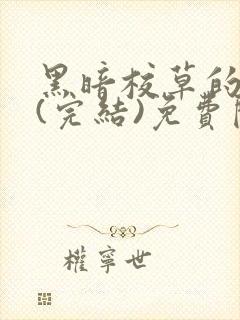 黑暗校草的
(完結)免費
權寧世